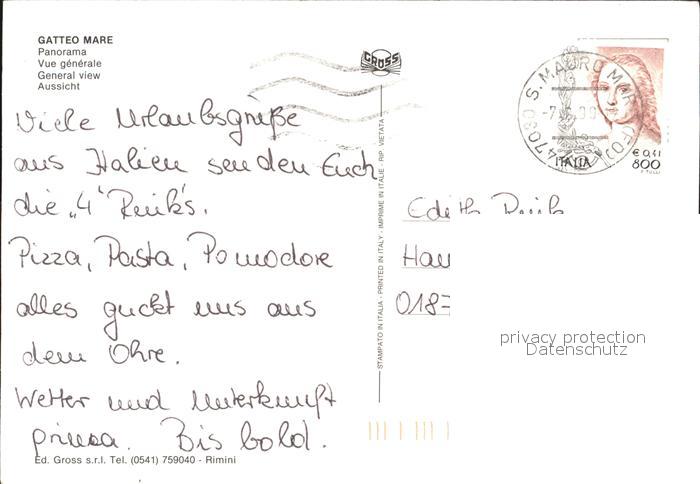 GATTEO MARE
Panorama
Vue générale
General view
Aussicht
GROSS
47030 S. MAURO MARE (FO)
ITALIA
€ 0,41
800
Viele Urlaubsgrüße
aus Italien senden Euch
die „4" Renk's.
Pizza, Pasta, Pomodore
alles guckt uns aus
dem Ohre.
Wetter und Unterkunft
prima. Bis bald.
Edith
Hau
0187
STAMPATO IN ITALIA - PRINTED IN ITALY - IMPRIME IN ITALIE - RIP. VIETATA
privacy protection
Datenschutz
Ed. Gross s.r.l. Tel. (0541) 759040 - Rimini